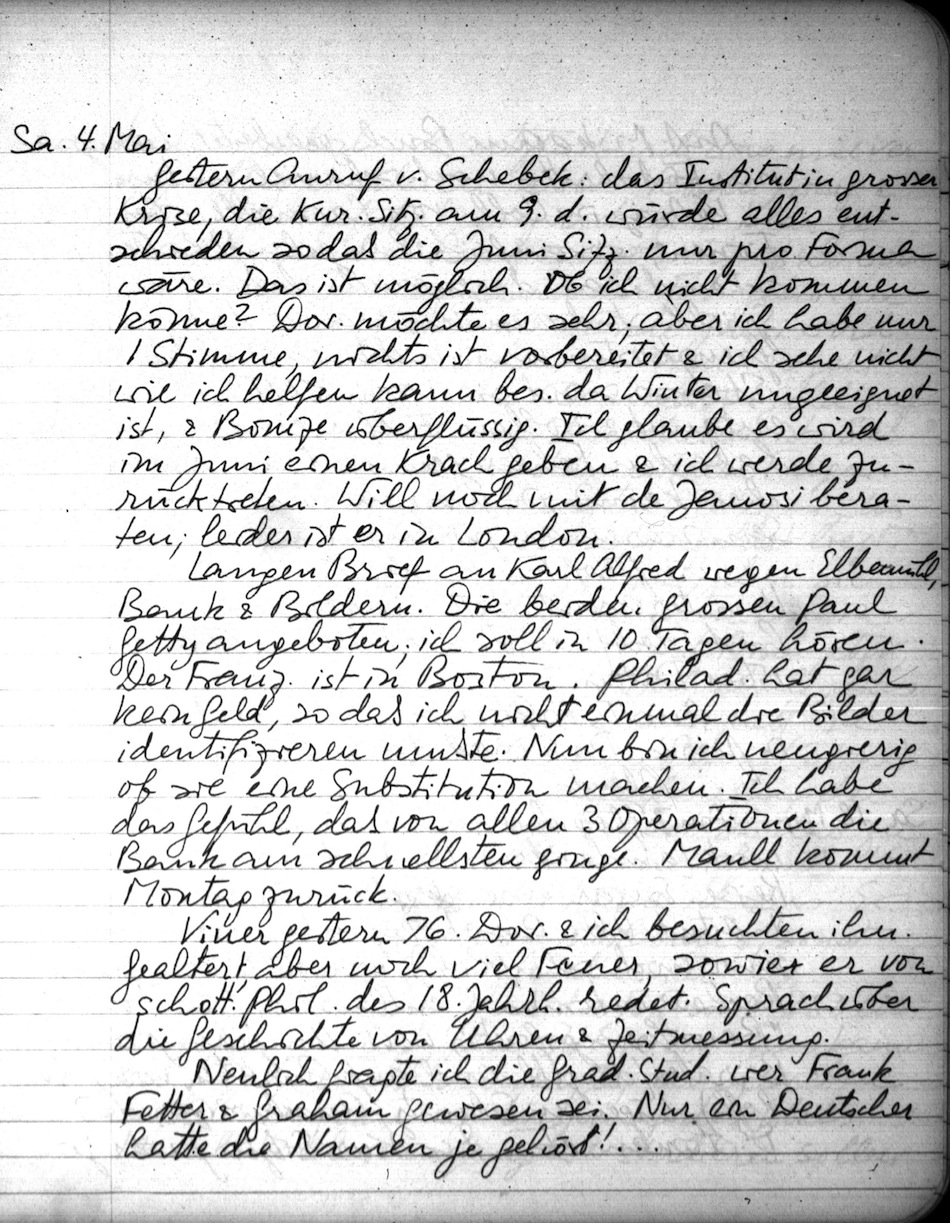 Sa. 4. Mai
gestern Anruf v. Schebek: das Institut in grosser
Krise, die Kur. Sitz. am 9. d. würde alles ent-
scheiden sodaß die Juni Sitz. nur pro Forma
wäre. Das ist möglich. Ob ich nicht kommen
könne? Dor. möchte es sehr, aber ich habe nur
1 Stimme, nichts ist vorbereitet & ich sehe nicht
wie ich helfen kann bes. da Winter ungeeignet
ist, & Bonze überflüssig. Ich glaube es wird
im Juni einen Krach geben & ich werde zu-
rücktreten. Will noch mit de Janosi bera-
ten; leider ist er in London.
Langen Brief an Karl Alfred wegen Elbemühl,
Bank & Bildern. Die beiden grossen Paul
Getty angeboten; ich soll in 10 Tagen hören.
Der Franz. ist in Boston. Philad. hat gar
kein Geld, so daß ich nicht einmal die Bilder
identifizieren mußte. Nun bin ich neugierig
ob sie eine Substitution machen. Ich habe
das Gefühl, daß von allen 3 Operationen die
Bank am schnellsten ginge. Maull kommt
Montag zurück.
Viner gestern 76. Dor. & ich besuchten ihn.
Gealtert, aber noch viel Feuer, sowie er von
schott. Phil. des 18. Jahrh. redet. Sprach über
die Geschichte von Uhren & Zeitmessung.
Neulich fragte ich die Grad. Stud. wer Frank
Fetter & Graham gewesen sei. Nur ein Deutscher
hatte die Namen je gehört! ...